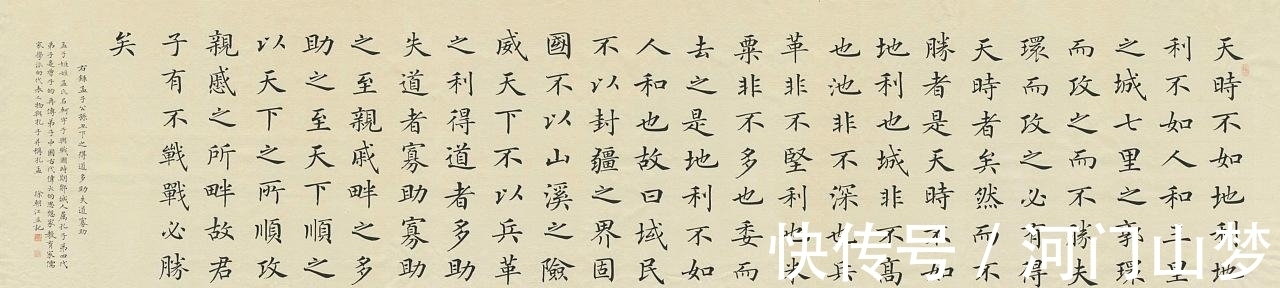 天時不如地利地
利不如人和三里
之城七里之郭環
而攻之而不勝夫
環而攻之必有得
天時者矣然而不
勝者是天時不如
地利也城非不高
也池非不深也兵
革非不堅利也米
粟非不多也委而
去之是地利不如
人和也故曰域民
不以封疆之界固
國不以山溪之險
威天下不以兵革
之利得道者多助
失道者寡助寡助
之至親戚畔之多
助之至天下順之
以天下之所順攻
親戚之所畔故君
子有不戰戰必勝
矣
右錄孟子公孫丑下之得道多助失道寡助
孟子姬姓孟氏名軻字子輿戰國時期鄒城人屬孔子第四代
弟子是曾子的再傳弟子中國古代偉大的思想家教育家儒
家學派的代表人物與孔子并稱孔孟 徐朝江并記
快传号 / 河门山梦